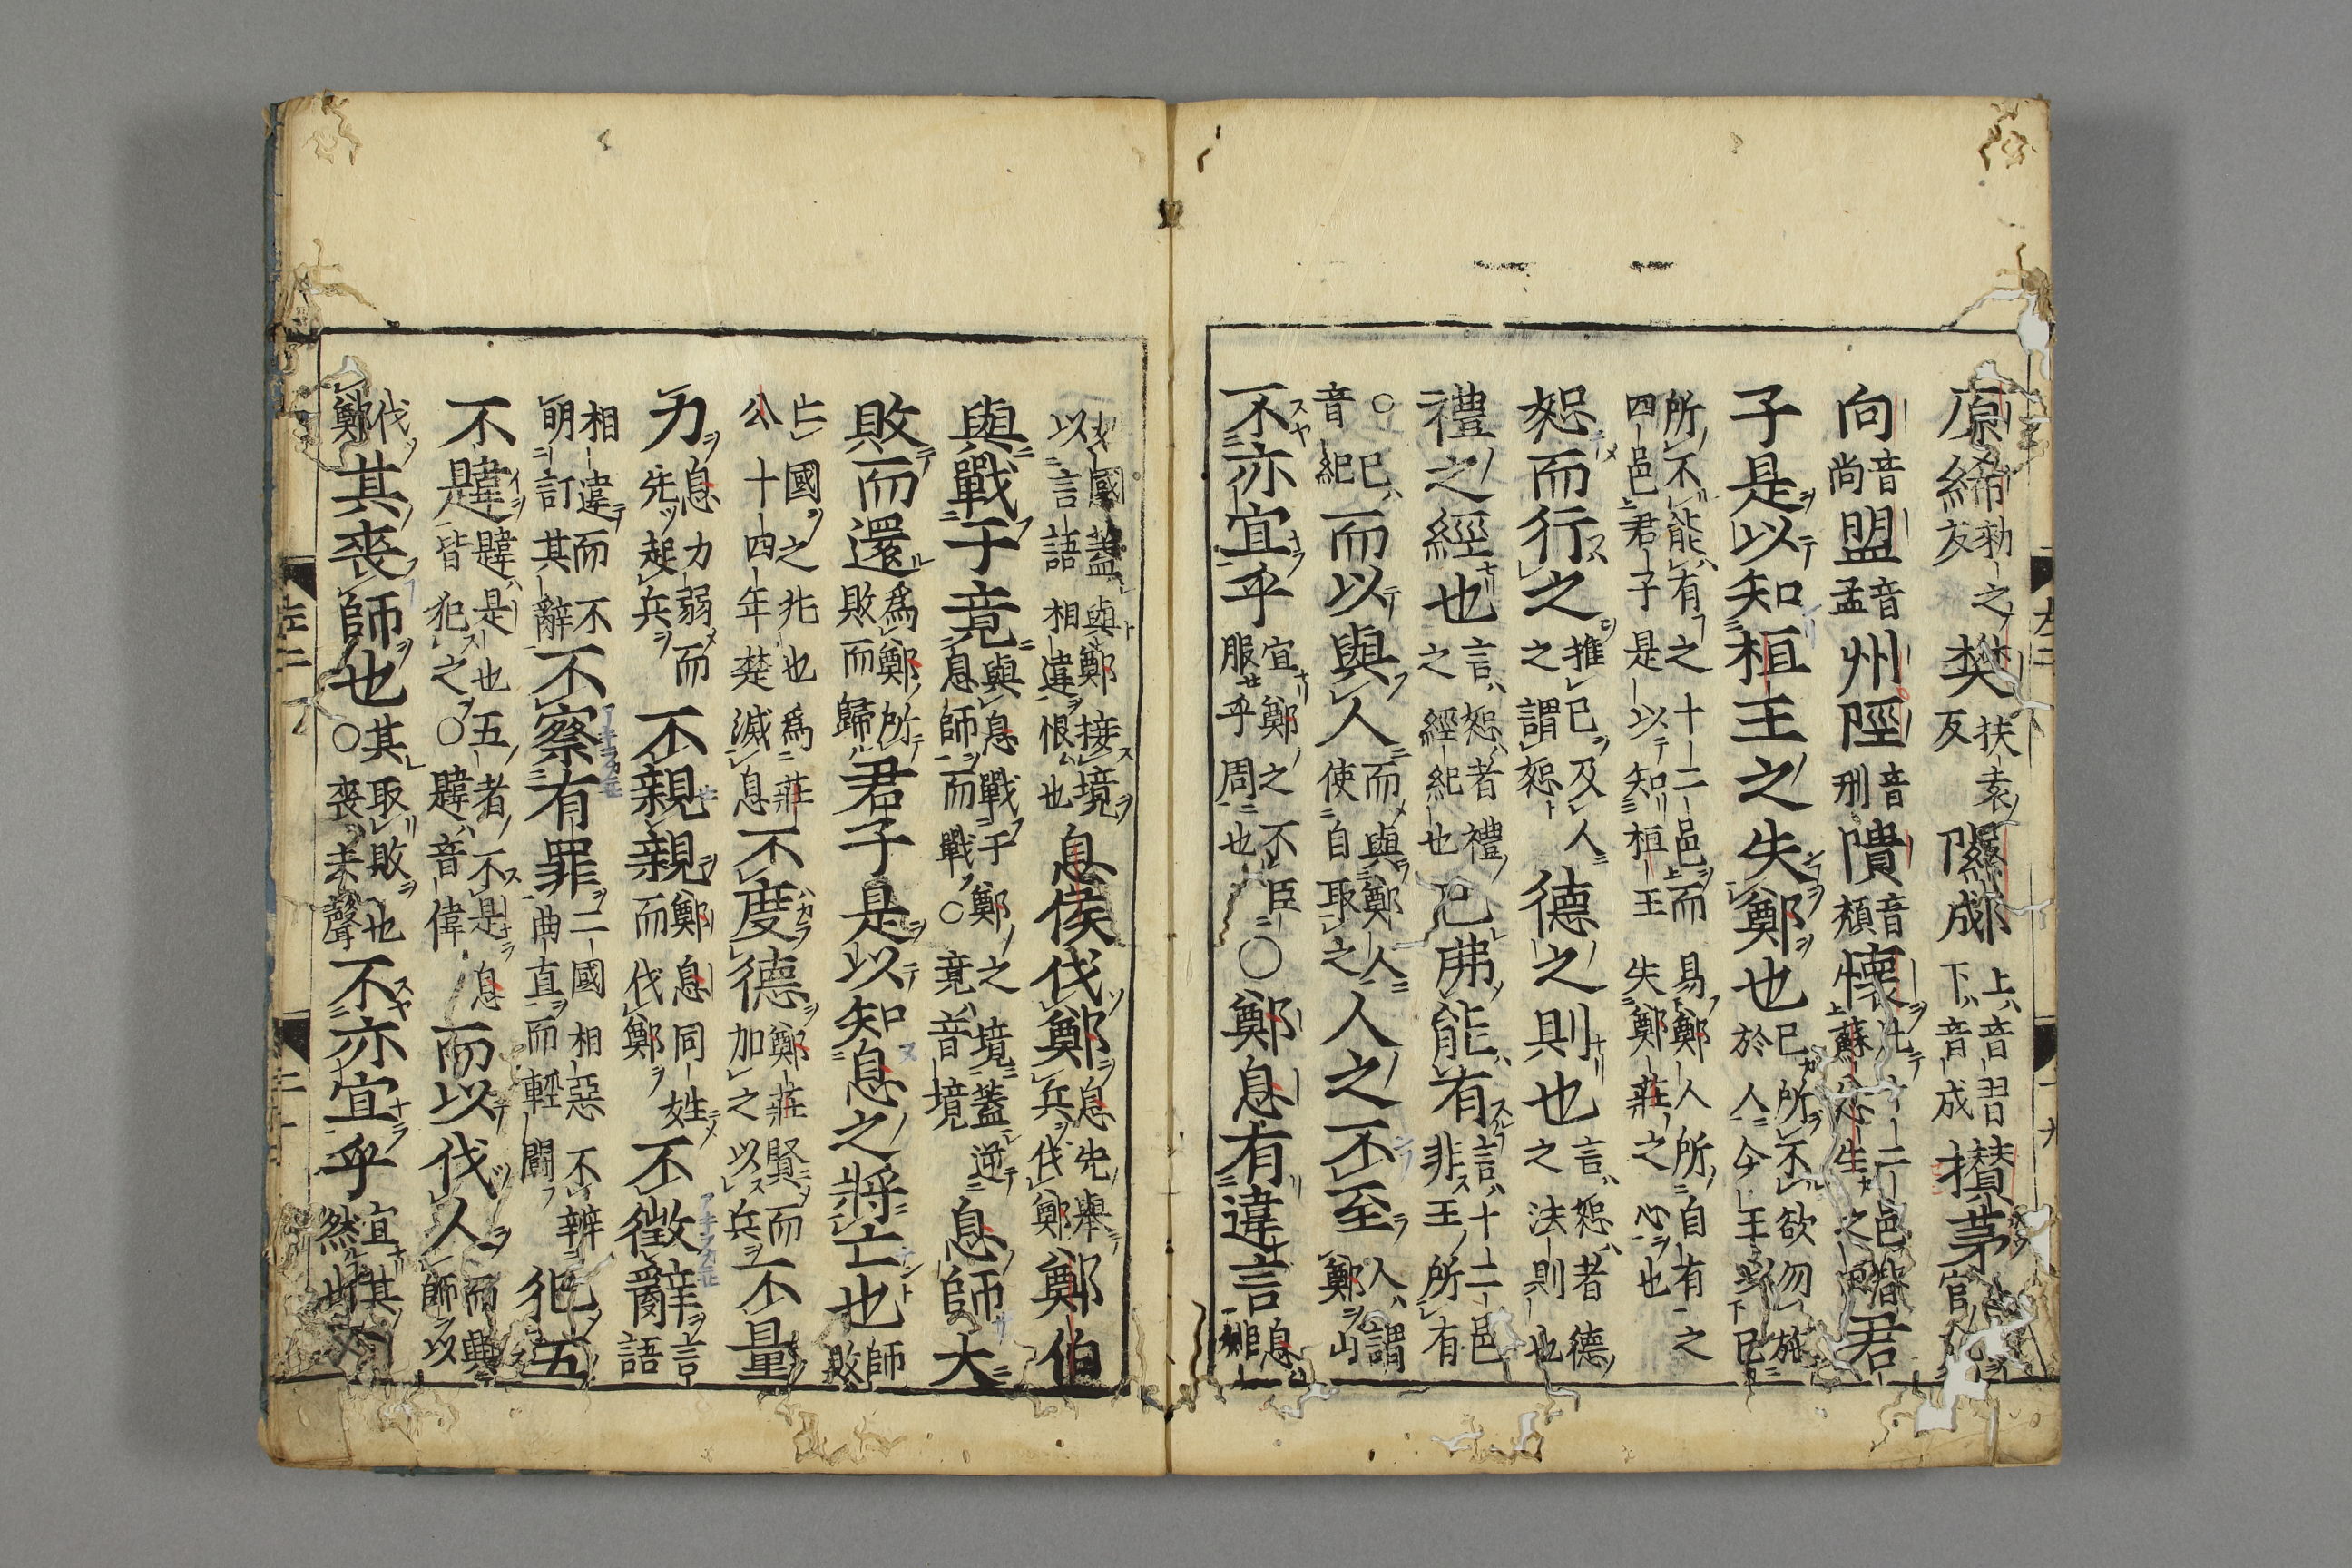 原絺勑之反樊扶袁反隰郕上音習下音成攅茅官反
向音尚盟音孟州陘音刑隤音頹懷比十二邑皆上蘇忿生之田君
子是以知桓王之失鄭也已所不欲勿施於人今王以
所不能有之十二邑而易鄭人所自有之四邑君子是以知桓王失鄭莊之心也
恕而行之推已及人之謂恕德之則也言恕者德之法則也
禮之經也言恕者禮之經紀也已弗能有言十二邑非王所有
○已音紀而以與人而與鄭人使自取之人之不至人謂鄭山
不亦宜乎宜鄭之不臣服乎周也○鄭息有違言息
國蓋與鄭接境以言語相違恨也息侯伐鄭息先舉兵伐鄭鄭伯
與戰于竟與息戰于鄭之境蓋逆息師而戰○竟音境息師大
敗而還爲鄭所敗而歸君子是以知息之將亡也師敗
亡國之兆也爲莊公十四年楚滅息不度德鄭莊賢而加之以兵不量
力息力弱而先起兵不親親鄭息同姓而伐鄭不徵辭言語
相違而不明訂其辭不察有罪二國相惡不辨曲直而輕鬪犯五
不韙韙是也五者不是息皆犯之○韙音偉而以伐人而興師以
伐鄭其喪師也其取敗也○喪去聲不亦宜乎宜其然